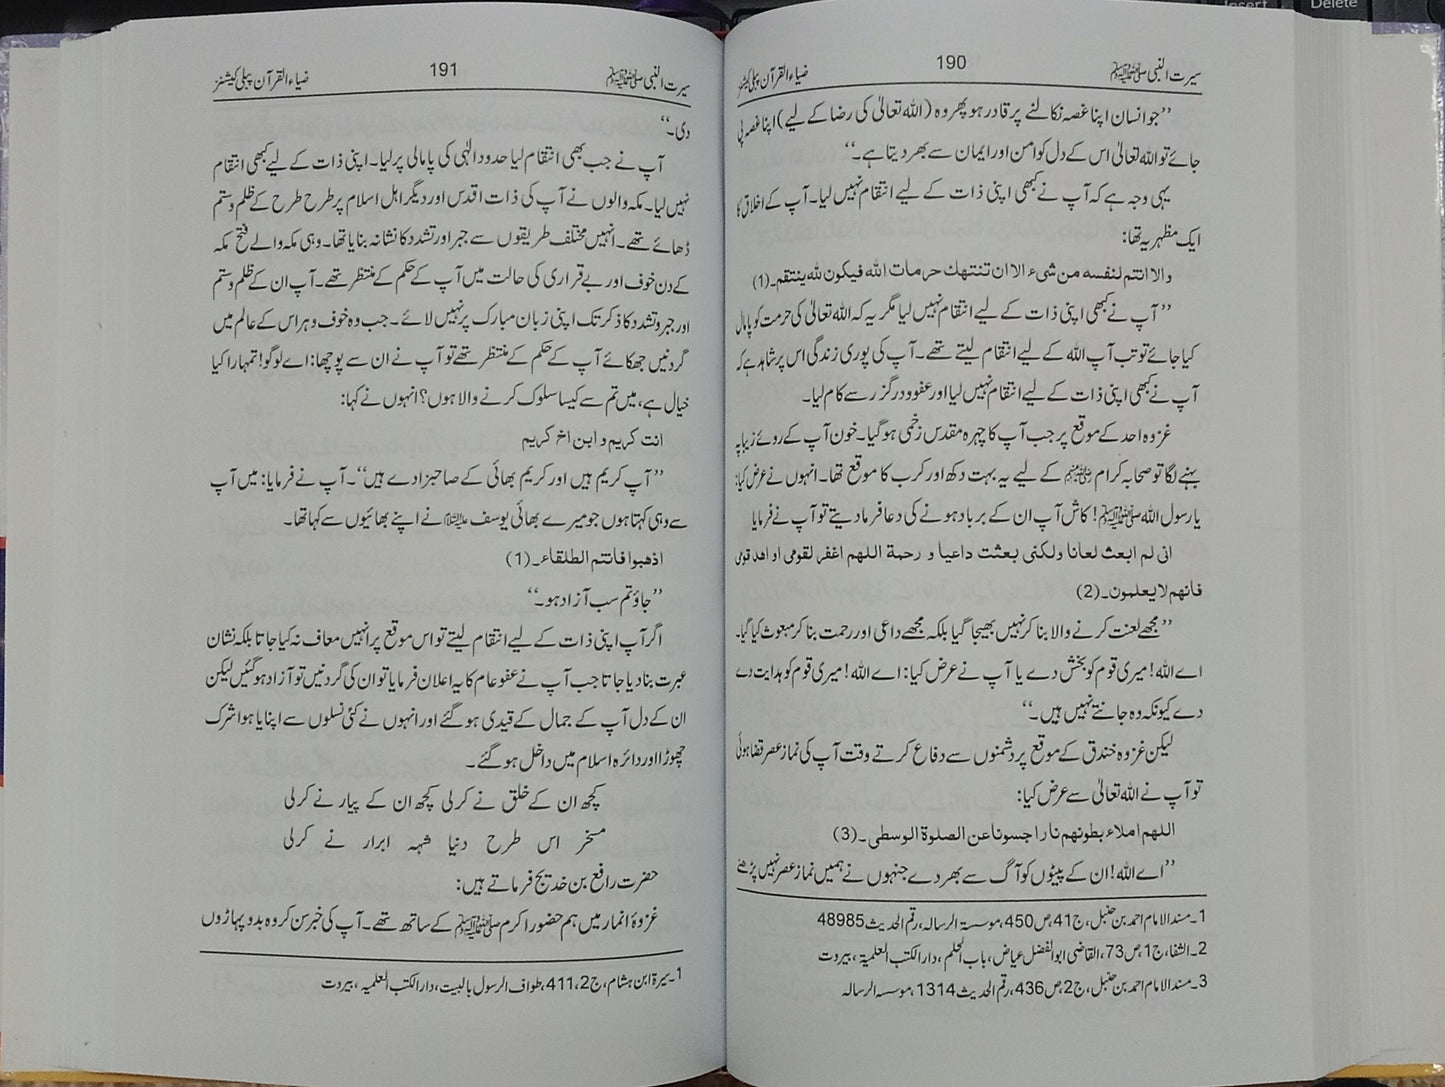 Insert
Delete
سیرت النبی ﷺ
190
ضیاء القرآن پبلی کیشنز
’’جو انسان اپنا غصہ نکالنے پر قادر ہو پھر وہ (اللہ تعالیٰ کی رضا کے لیے) اپنا غصہ پی
جائے تو اللہ تعالیٰ اس کے دل کو امن اور ایمان سے بھر دیتا ہے۔‘‘
یہی وجہ ہے کہ آپ نے کبھی اپنی ذات کے لیے انتقام نہیں لیا۔ آپ کے اخلاق کا
ایک مظہر یہ تھا:
والا انتم لنفسه من شیء الا ان تنتهك حرمات اللہ فیکون للہ ینتقم۔(1)
’’آپ نے کبھی اپنی ذات کے لیے انتقام نہیں لیا مگر یہ کہ اللہ تعالیٰ کی حرمت کو پامال
کیا جائے تو تب آپ اللہ کے لیے انتقام لیتے تھے۔ آپ کی پوری زندگی اس پر شاہد ہے کہ
آپ نے کبھی اپنی ذات کے لیے انتقام نہیں لیا اور عفو و درگزر سے کام لیا۔
غزوہ احد کے موقع پر جب آپ کا چہرہ مقدس زخمی ہو گیا۔ خون آپ کے روئے زیبا پہ
بہنے لگا تو صحابہ کرام رضی اللہ عنہم کے لیے یہ بہت دکھ اور کرب کا موقع تھا۔ انہوں نے عرض کیا:
یا رسول اللہ ﷺ! کاش آپ ان کے برباد ہونے کی دعا فرما دیتے تو آپ نے فرمایا
انی لم ابعث لعانا ولکنی بعثت داعیا و رحمة اللهم اغفر لقومی او اهد قومی
فانهم لا یعلمون۔(2)
’’مجھے لعنت کرنے والا بنا کر نہیں بھیجا گیا بلکہ مجھے داعی اور رحمت بنا کر مبعوث کیا گیا۔
اے اللہ! میری قوم کو بخش دے یا آپ نے عرض کیا: اے اللہ! میری قوم کو ہدایت دے
دے کیونکہ وہ جانتے نہیں ہیں۔‘‘
لیکن غزوہ خندق کے موقع پر دشمنوں سے دفاع کرتے وقت آپ کی نماز عصر قضا ہوئی
تو آپ نے اللہ تعالیٰ سے عرض کیا:
اللهم املاء بطونهم نارا جسونا عن الصلوة الوسطی۔(3)
’’اے اللہ! ان کے پیٹوں کو آگ سے بھر دے جنہوں نے ہمیں نماز عصر نہیں پڑھنے
1۔ مسند الامام احمد بن حنبل، ج41، ص450، موسسۃ الرسالہ، رقم الحدیث 48985
2۔ الشفا، ج1، ص73، القاضی ابو الفضل عیاض، باب الحلم، دار الکتب العلمیۃ، بیروت
3۔ مسند الامام احمد بن حنبل، ج2، ص436، رقم الحدیث 1314، موسسۃ الرسالہ
سیرت النبی ﷺ
191
ضیاء القرآن پبلی کیشنز
دی۔‘‘
آپ نے جب بھی انتقام لیا حدود الٰہی کی پامالی پر لیا۔ اپنی ذات کے لیے کبھی انتقام
نہیں لیا۔ مکہ والوں نے آپ کی ذات اقدس اور دیگر اہل اسلام پر طرح طرح کے ظلم و ستم
ڈھائے تھے۔ انہیں مختلف طریقوں سے جبر اور تشدد کا نشانہ بنایا تھا۔ وہی مکہ والے فتح مکہ
کے دن خوف اور بے قراری کی حالت میں آپ کے حکم کے منتظر تھے۔ آپ ان کے ظلم و ستم
اور جبر و تشدد کا ذکر تک اپنی زبان مبارک پر نہیں لائے۔ جب وہ خوف و ہراس کے عالم میں
گردنیں جھکائے آپ کے حکم کے منتظر تھے تو آپ نے ان سے پوچھا: اے لوگو! تمہارا کیا
خیال ہے، میں تم سے کیسا سلوک کرنے والا ہوں؟ انہوں نے کہا:
انت کریم و ابن اخ کریم
’’آپ کریم ہیں اور کریم بھائی کے صاحبزادے ہیں‘‘۔ آپ نے فرمایا: میں آپ
سے وہی کہتا ہوں جو میرے بھائی یوسف علیہ السلام نے اپنے بھائیوں سے کہا تھا۔
اذهبوا فانتم الطلقاء۔(1)
’’جاؤ تم سب آزاد ہو۔‘‘
اگر آپ اپنی ذات کے لیے انتقام لیتے تو اس موقع پر انہیں معاف نہ کیا جاتا بلکہ نشان
عبرت بنا دیا جاتا جب آپ نے عفو عام کا یہ اعلان فرمایا تو ان کی گردنیں تو آزاد ہو گئیں لیکن
ان کے دل آپ کے جمال کے قیدی ہو گئے اور انہوں نے کئی نسلوں سے اپنایا ہوا شرک
چھوڑا اور دائرہ اسلام میں داخل ہو گئے۔
کچھ ان کے خلق نے کر لی کچھ ان کے پیار نے کر لی
مسخر اس طرح دنیا شہہ ابرار نے کر لی
حضرت رافع بن خدیج فرماتے ہیں:
غزوۂ انمار میں ہم حضور اکرم ﷺ کے ساتھ تھے۔ آپ کی خبر سن کر وہ بدو پہاڑوں
1۔ سیرۃ ابن ہشام، ج2، 411، طواف الرسول بالبیت، دار الکتب العلمیہ، بیروت